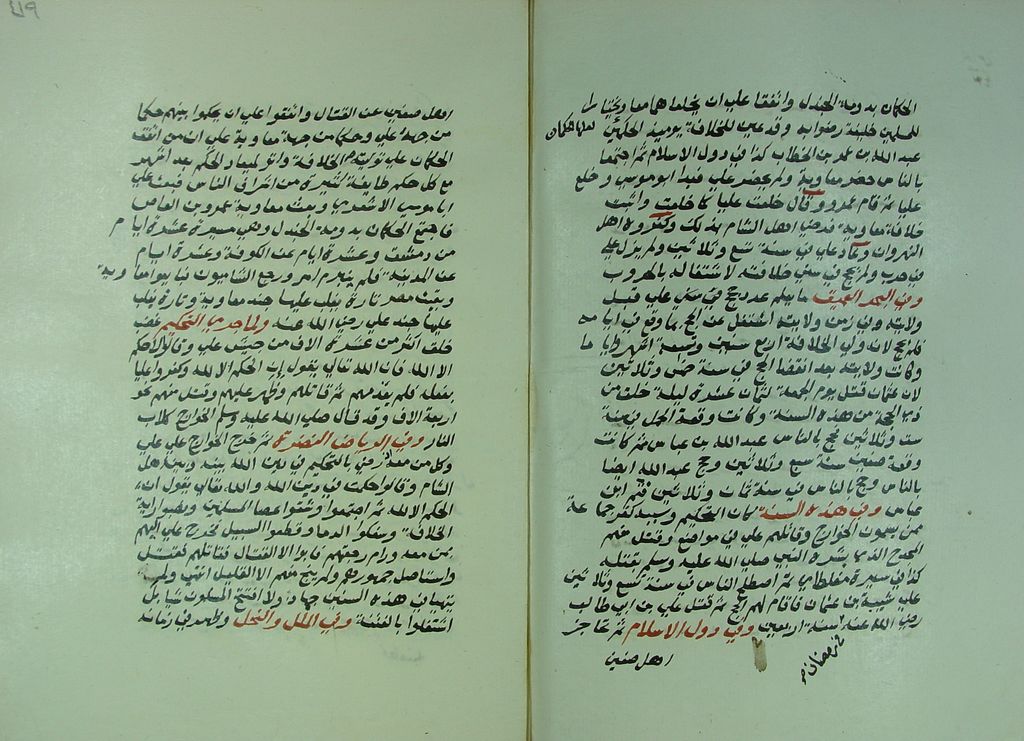 الحكمان بدومة الجندل واتفقا علي ان يخلعاهما معا ويختارا
للمسلمين خليفة رضوا به وقد عين للخلافة يوميذ الحكمين
عبد الله بن عمر بن الخطاب كذا في دول الاسلام ثم اجتمعا
بالناس حضر معاوية ولم يحضر علي فبدا ابو موسي وخلع
عليا ثم قام عمرو وقال خلعت عليا كما خلعت واثبت
خلافة معاوية فرضي اهل الشام بذلك وكفروه اهل
النهروان وكان علي في سنة تسع وثلاثين ولم يزل علي
في حرب ولم يحج في سني خلافته لاشتغاله بالحروب
وفي البحر العميق ما يعلم عدد حج في سني علي قبل
ولايته وفي زمن ولايته اشتغل عن الحج بما وقع في ايامه
فلم يحج لانه ولي الخلافة اربع سنين وتسعة اشهر واياما
وكانت ولايته بعد انقضا الحج في سنة خمس وثلاثين
لان عثمان قتل يوم الجمعة لثمان عشرة ليلة خلت من
ذي الحجة من هذه السنة وكانت وقعة الجمل في سنة
ست وثلاثين فحج بالناس عبد الله بن عباس ثم كانت
وقعة صفين سنة سبع وثلاثين وحج عبد الله ايضا
بالناس وحج بالناس في سنة ثمان وثلاثين قثم ابن
عباس وفي هذه السنة كان التحكيم وبسببه كفر جماعة
ممن يسمون الخوارج وقاتلهم علي في مواضع وقتل منهم
المخدج الذي بشره النبي صلي الله عليه وسلم بقتله
كذا في سيرة مغلطاي ثم اصطلح الناس في سنة تسع وثلاثين
علي شيبة بن عثمان فاقام لهم الحج ثم قتل علي بن ابي طالب
رضي الله عنه سنة اربعين وفي دول الاسلام ثم تحاجز
في رمضان
اهل صفين
اهل صفين عن القتال واتفقوا علي ان يحكموا بينهم حكما
من جهة علي وحكما من جهة معاوية علي ان من اتفق
الحكمان علي توليته الخلافة واتوا لميعاد الحكم بعد اشهر
مع كل حكم طايفة كثيرة من اشراف الناس فبعث علي
ابا موسي الاشعري وبعث معاوية عمرو بن العاص
فاجتمع الحكمان بدومة الجندل وهي مسيرة عشرة ايام
من دمشق وعشرة ايام عن الكوفة وعشرة ايام
عن المدينة فلم ينبرم امر ورجع الشاميون فبايعوا معاوية
وبقيت مصر تارة يغلب عليها جند معاوية وتارة يغلب
عليها جند علي رضي الله عنه ولما جري التحكيم غضب
خلق اكثر من عشرة الاف من جيش علي وقالوا لا حكم
الا الله فان الله تعالي يقول ان الحكم الا لله وكفروا عليا
بفعله فلم يقدمهم ثم قاتلهم وظهر عليهم وقتل منهم نحو
اربعة الاف وقد قال صلي الله عليه وسلم الخوارج كلاب
النار وفي الرياض النضرة ثم خرج الخوارج علي علي
وكل من معه رضي بالتحكيم في دين الله بينه وبين اهل
الشام وقالوا حكمت في دين الله والله تعالي يقول ان
الحكم الا لله ثم اجتمعوا وشقوا عصا المسلمين ونصبوا راية
الخلاف وسفكوا الدما وقطعوا السبيل فخرج علي اليهم
بمن معه ورام رجعتهم فابوا الا القتال فقاتلهم فقتل
واستاصل جمهورهم ولم ينج منهم الا القليل انتهي ولم
يتهيا في هذه السنين جهاد ولا افتتح المسلمون شيا بل
اشتغلوا بالفتنة وفي الملل والنحل وظهر في زمانه